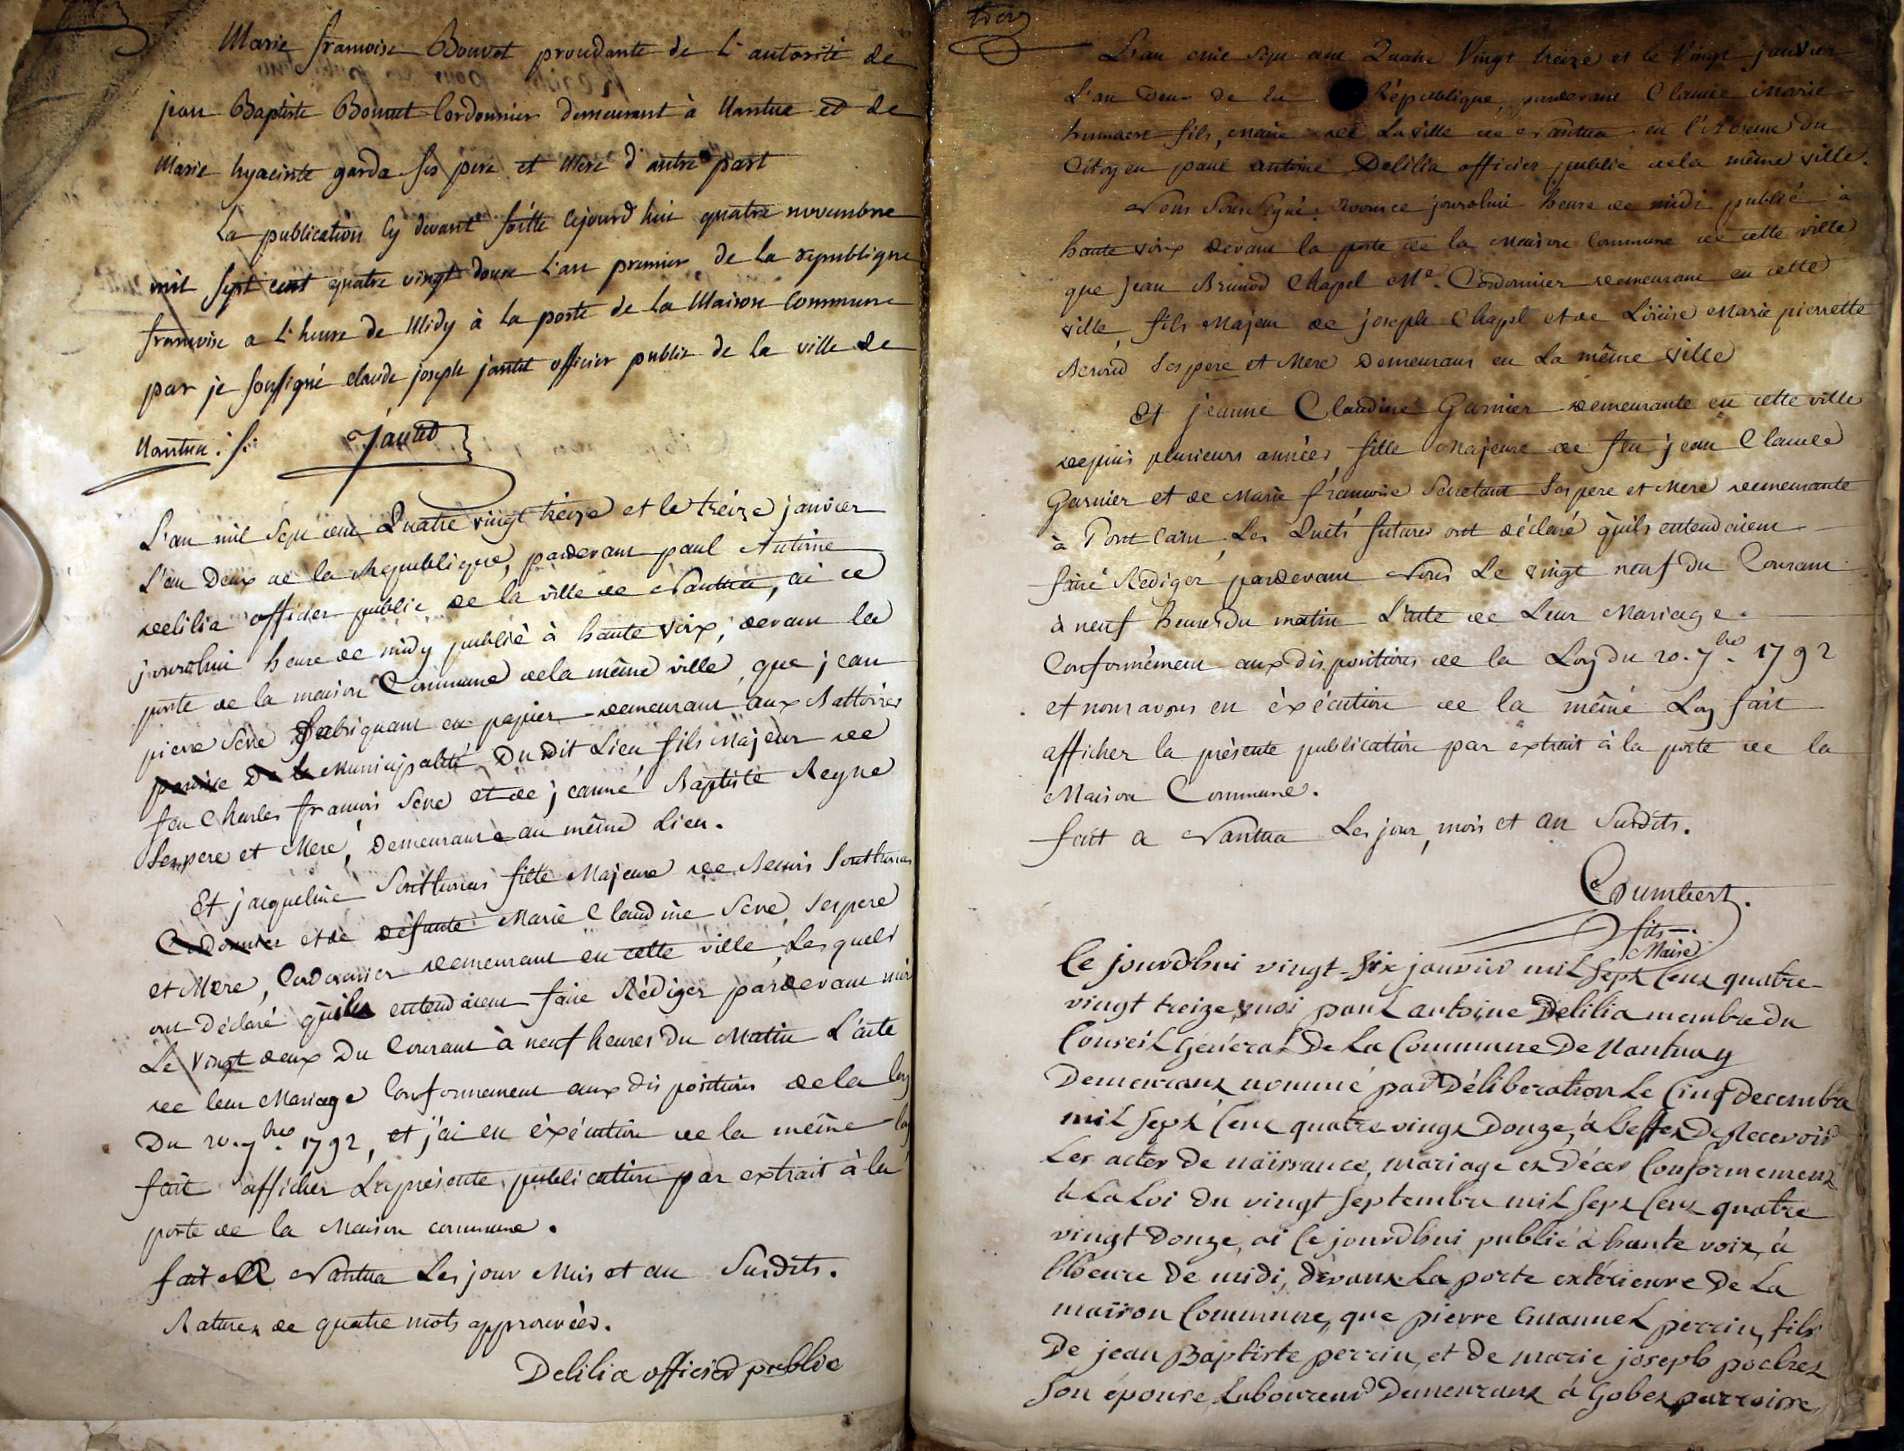 Marie francoise Bouvet procedante de L'autorité de
jean Baptiste Bouvet Cordonnier demeurant à Nantua et de
Marie hyacinte garda ses pere et Mere d'autre part
La publication cy devant faitte cejourd'hui quatre novembre
mil sept cent quatre vingt douze L'an premier de la republique
francoise a L'heure de Midy à la porte de la Maison Commune
par je soussigné claude joseph jantet officier public de la ville de
Nantua
Jantet
L'an mil sept cent Quatre vingt treize et le treize janvier
L'an Deux de la Republique, pardevant paul Antoine
Delilia officier public de la ville de Nantua, ai ce
jourdhui heure de midy publié à haute voix, devant la
porte de la maison Commune de la même ville, que jean
pierre Sève fabriquant en papier demeurant aux Battoires
paroisse De la Municipalité Dudit Lieu, fils Majeur de
feu Charles françois Sève et de jeanne Baptiste Reyne
Ses pere et Mere, Demeurante au même Lieu.
Et jacqueline fille Majeure de
Cordonnier et de défunte Marie Claudine Sève, Ses pere
et Mere, Cordonnier demeurant en cette ville, Lesquels
ont Déclaré qu'ils entendoient faire Rédiger pardevant moi
Le vingt deux Du Courant à neuf heures Du Matin L'acte
de leur Mariage Conformement aux dispositions de la loy
Du 20. 7bre 1792, et j'ai en éxécution de la même loy
fait afficher La présente publication par extrait à la
porte de la Maison commune.
fait A Nantua Les jour Mois et an Susdits.
Rature de quatre mots approuvées.
Delilia officier public
L'an mil Sept cent Quatre Vingt treize et le Vingt janvier
L'an Deux de la République, pardevant Claude Marie
humbert fils, Maire de La ville de Nantua en l'Absence du
Citoyen paul antoine Delilia officier public de la même ville.
Nous Soussigné, Avons ce jourdhui heure de midi publié à
haute voix devant la porte de la Maison Commune de cette ville
que jean Brunod Chapel Me. Cordonnier demeurant en cette
ville, fils Majeur de joseph Chapel et de Loüise Marie pierrette
Ses pere et Mere Demeurans en La même ville
Et jeanne Claudine Garnier demeurante en cette ville
depuis plusieurs années, fille Majeure de feu jean Claude
Garnier et de Marie françoise Secretant Ses pere et Mere demeurante
à Les futurs ont déclaré qu'ils entendoient
faire Rediger pardevant Nous Le vingt neuf du Courant
à neuf heures du matin L'acte de Leur Mariage.
Conformément aux dispositions de la Loy du 20. 7bre. 1792
et nous avons en éxécution de la même Loy fait
afficher la présente publication par extrait à la porte de la
Maison Commune.
fait a Nantua Les jour, mois et an Susdits.
Cl humbert.
fils
Maire
Ce jourdhui vingt-six janvier mil sept cent quatre
vingt treize, moi paul antoine Delilia membre du
Conseil Général De La Commune De Nantua y
Demeurant nommé par Délibération Le Cinq decembre
mil sept cent quatre vingt Douze, à L'effet De Recevoir
Les actes De naissance, mariage et Décès Conformement
à La Loi du vingt septembre mil sept cent quatre
vingt Douze, ai Ce jourdhui publié à haute voix, à
L'heure De midi, devant La porte extérieure De La
maison Commune, que pierre Emanuel perrin, fils
De jean Baptiste perrin, et de marie joseph pochet
son épouse, Laboureur Demeurant à parroisse